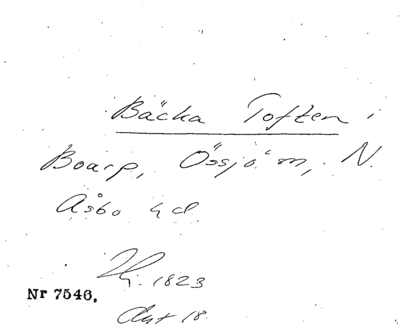 Bäcka Toften i
Boarp, Össjö m, N.
Åsbo hd.
1823
Nr 7546.
Akt 18.